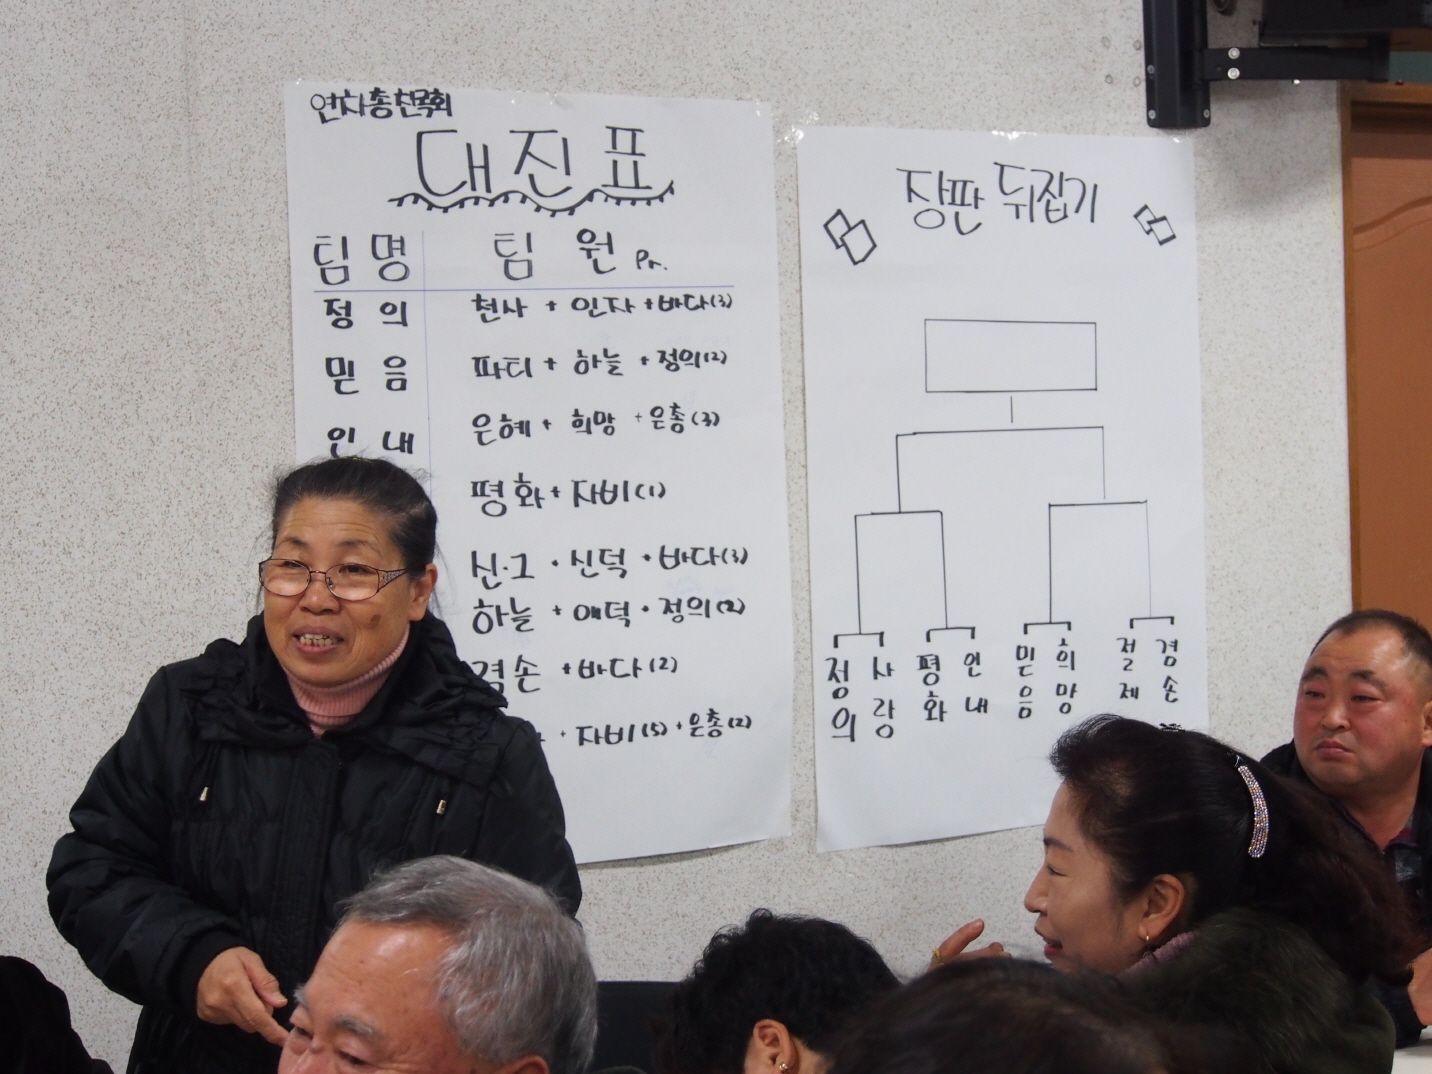 연차총친목회
대진표
팀명 팀원 Pr.
정의 천사 + 인자 + 바다(3)
믿음 파티 + 하늘 + 정의(2)
인내 은혜 + 희망 + 은총(3)
평화 + 자비(1)
신.그 · 신덕 · 바다(3)
하늘 + 애덕 · 정의(2)
겸손 + 바다(2)
+ 자비(5) + 은총(2)
장판 뒤집기
정의 사랑 평화 인내 믿음 희망 절제 겸손